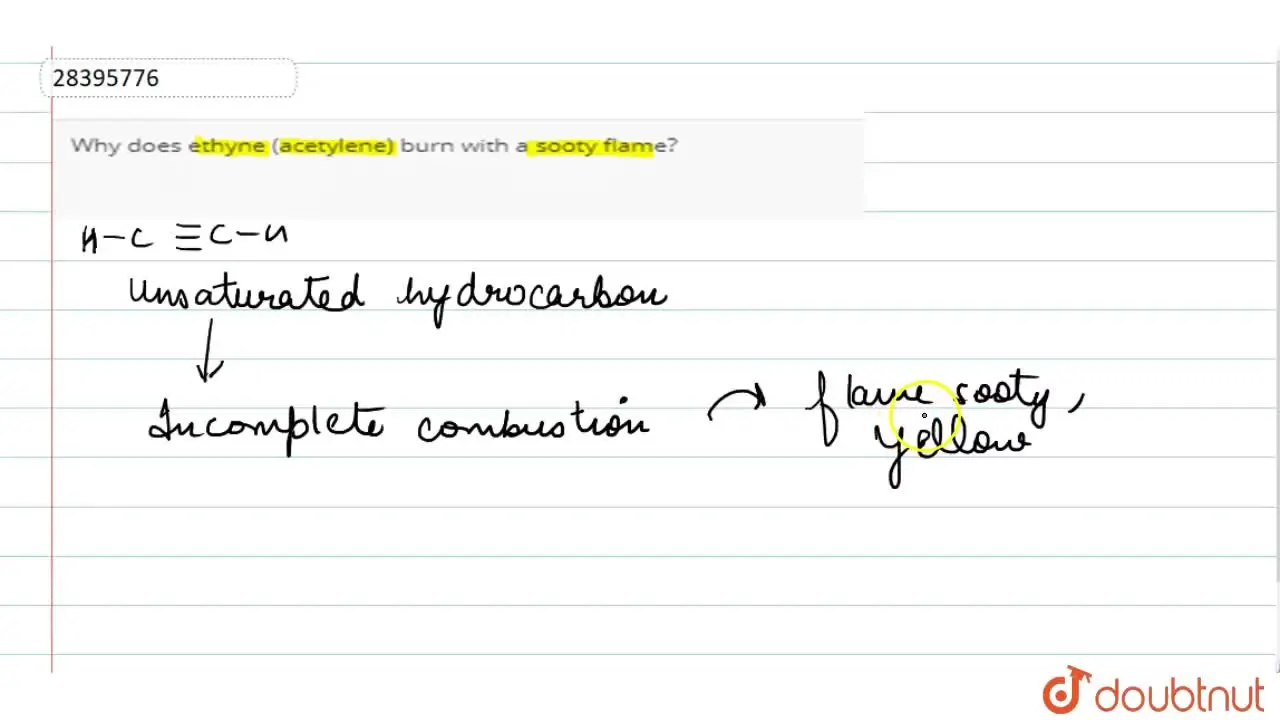 28395776
Why does ethyne (acetylene) burn with a sooty flame?
H-C ≡C-H
Unsaturated hydrocarbon
↓
Incomplete combustion → flame sooty,
yellow
doubtnut